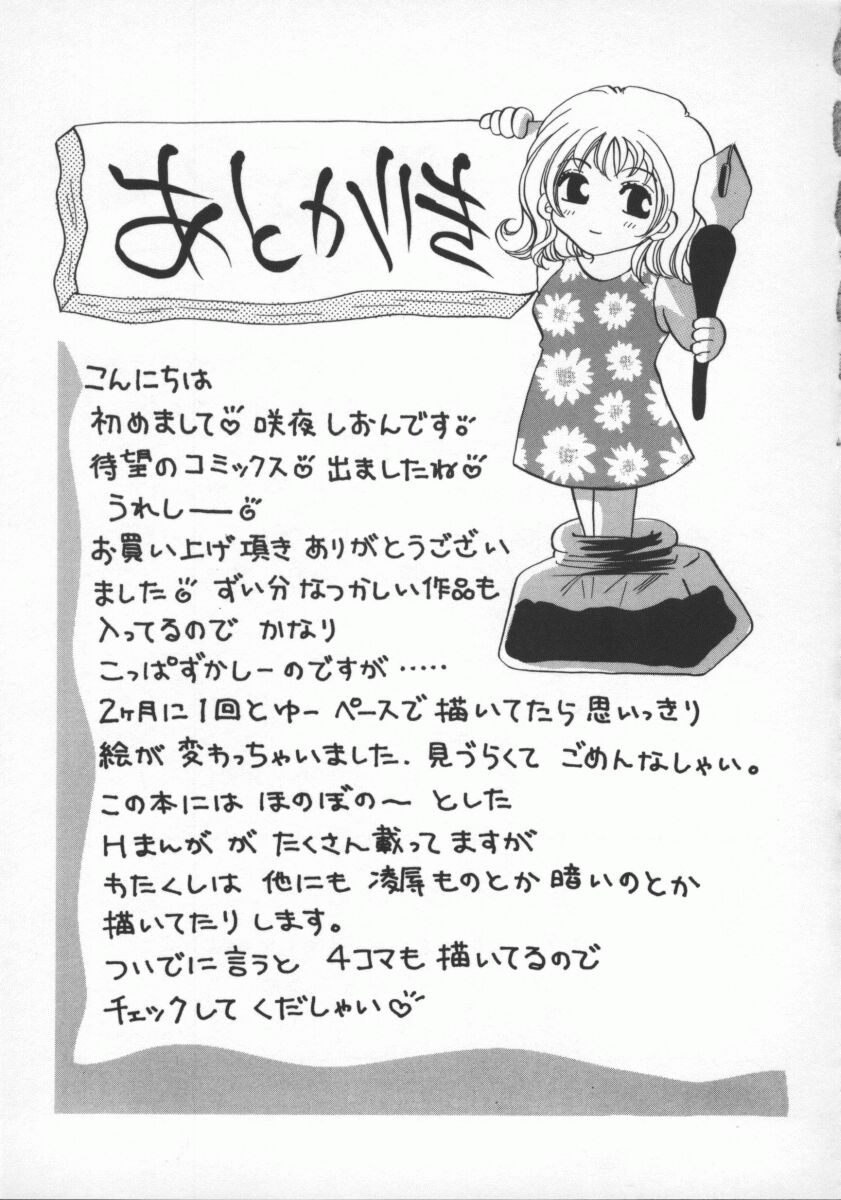 あとがき
こんにちは
初めまして♡ 咲夜しおんです!
待望のコミックス♡ 出ましたね♡
うれしー♡
お買い上げ頂き ありがとうござい
ました♡ ずい分 なつかしい作品も
入ってるので かなり
こっぱずかしーのですが……
2ヶ月に1回とゆー ペースで描いてたら 思いっきり
絵が 変わっちゃいました. 見づらくて ごめんなしゃい。
この本には ほのぼの~ とした
Hまんが が たくさん載ってますが
わたくしは 他にも 凌辱ものとか 暗いのとか
描いてたりします。
ついでに言うと 4コマも 描いてるので
チェックして くだしゃい♡